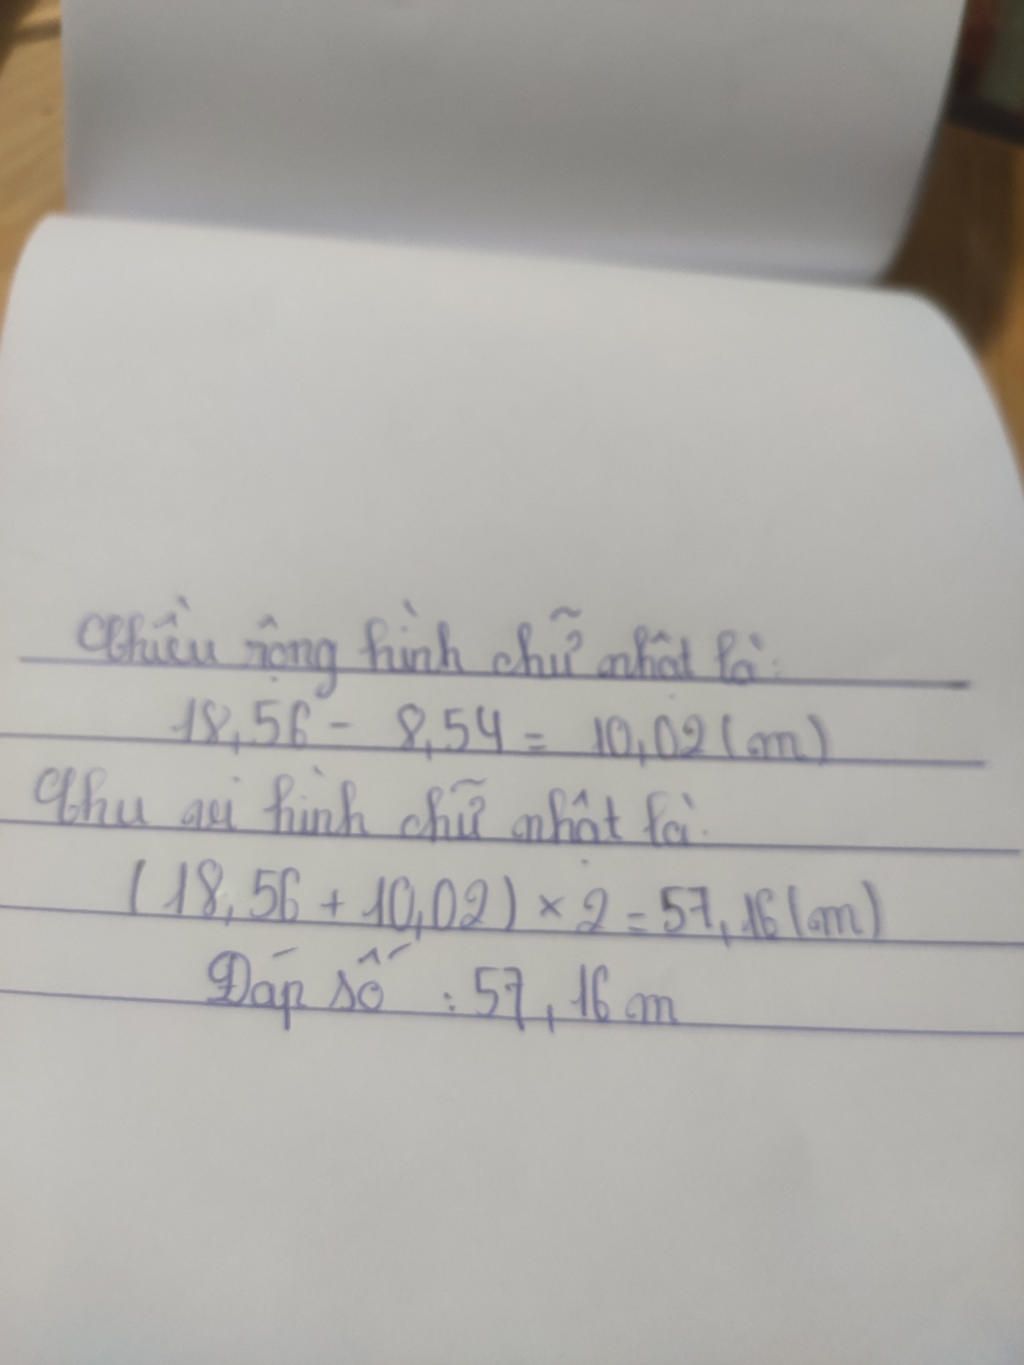 Chiều rộng hình chữ nhật là:
18,56 - 8,54 = 10,02 (m)
Chu vi hình chữ nhật là:
(18,56 + 10,02) × 2 = 57,16 (m)
Đáp số : 57,16 m